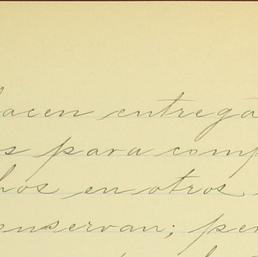 hacen entrega
s para comp
hos en otros
onservan; per